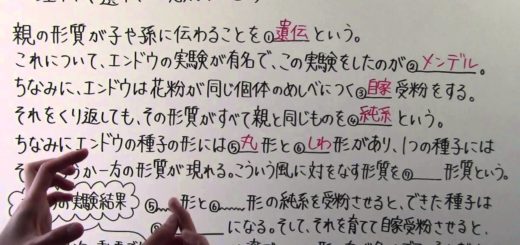 親の形質が子や孫に伝わることを①遺伝という。
これについて、エンドウの実験が有名で、この実験をしたのが②メンデル。
ちなみに、エンドウは花粉が同じ個体のめしべにつく③自家受粉をする。
それをくり返しても、その形質がすべて親と同じものを④純系という。
ちなみにエンドウの種子の形には⑤丸形と⑥しわ形があり、1つの種子には
か一方の形質が現れる。こういう風に対をなす形質を⑦形質という。
の実験結果 ⑤形と⑥形の純系を受粉させると、できた種子は
になる。そして、それを育てて自家受粉させると、